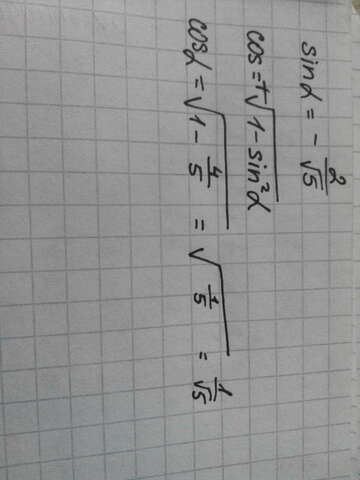 sinα = - 2/√5
cos = ±√1 - sin²α
cosα = √1 - 4/5 = √1/5 = 1/√5